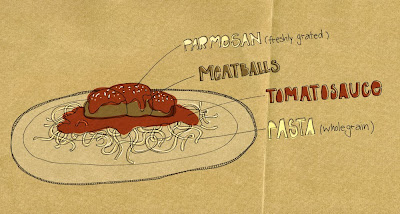 PARMOSAN (freshly grated)
MEATBALLS
TOMATOSAUCE
PASTA (wholegrain)